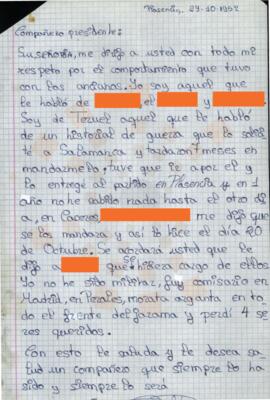 Plasencia, 27-10-1982
Compañero presidente:
Su señoria, me dirijo a usted con todo mi
respeto por el comportamiento que tuvo
con los ancianos. Yo soy aquel que
le habló de el y
Soy de Teruel aquel que le habló
de un historial de guerra que lo solici
té a Salamanca y tardaron 7 meses en
mandarmelo. tuve que ir a por el y
lo entregé al partido en Plasencia y en 1
año no he sabido nada hasta el otro di
a, en Caceres me dijo que
se los mandara y asi lo hice el dia 20
de Octubre. Se acordará usted que le
dijo a que se hiciera cargo de ellos
Yo no he sido militar, fuy comisario en
Madrid, en Perales, morata arganta en to
do el frente del Jarama y perdí 4 se
res queridos.
Con esto le saluda y le desea sa
lud un compañero que siempre lo ha
sido y siempre lo será